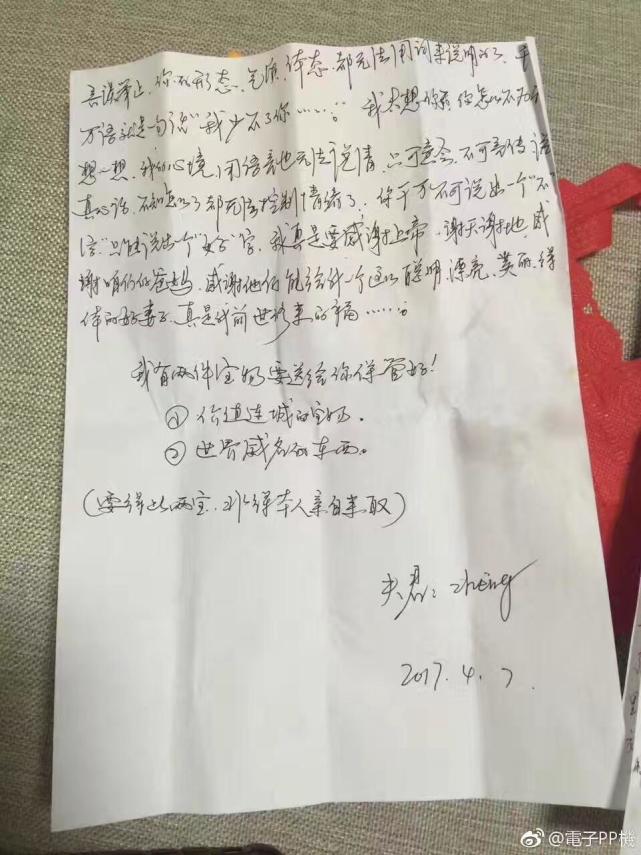 言谈举止,你的形态、气质、体态,都无法用词来说明了,千
万语就是一句话"我少不了你……。
想一想,我的心境,用语言也无法说清,只可意会,不可言传,说
真心话,不知怎么了都无法控制情绪了,你千万不可说出一个"不"
"只能说出一个"好"字,我真是要感谢上帝,谢天谢地,感
谢咱们的爸妈,感谢他们能给我一个这么聪明、漂亮、美丽、得
体的好妻子,真是我前世修来的福……。
我有两件宝物要送给你保管好!
① 价值连城的宝物。
② 世界威名的东西。
(要得此两宝,非得本人亲自来取)
夫君:zheng
2017.4.7
@電子PP機